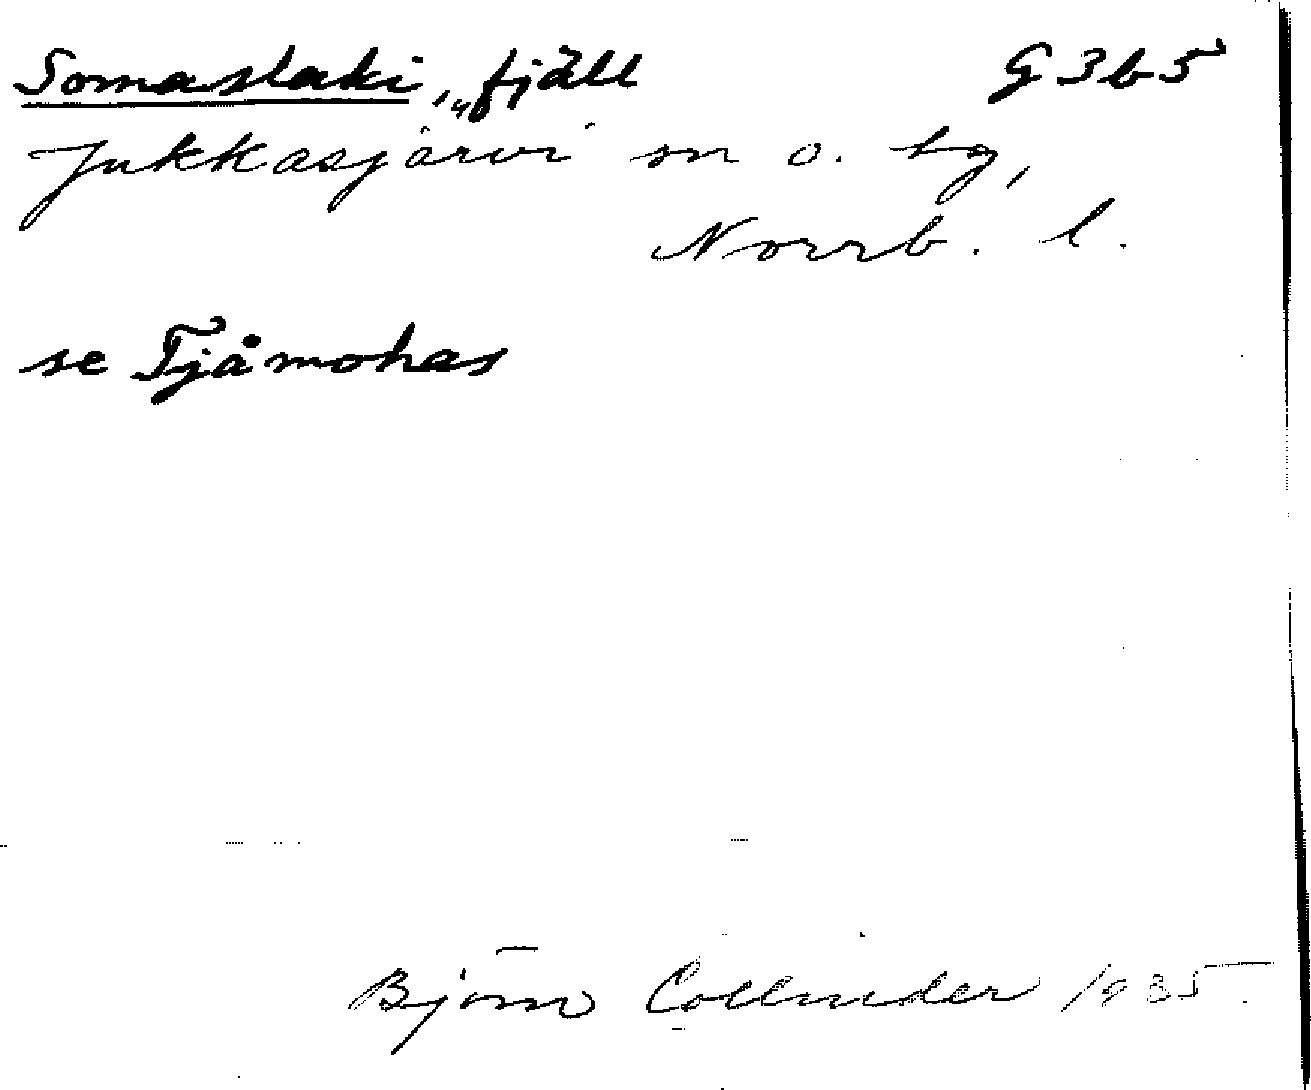 Somaslaki, „fjäll G 3b5
Jukkasjärvi sn o. tg,
Norrb. l.
se Tjåmohas
Björn Collinder 1935.